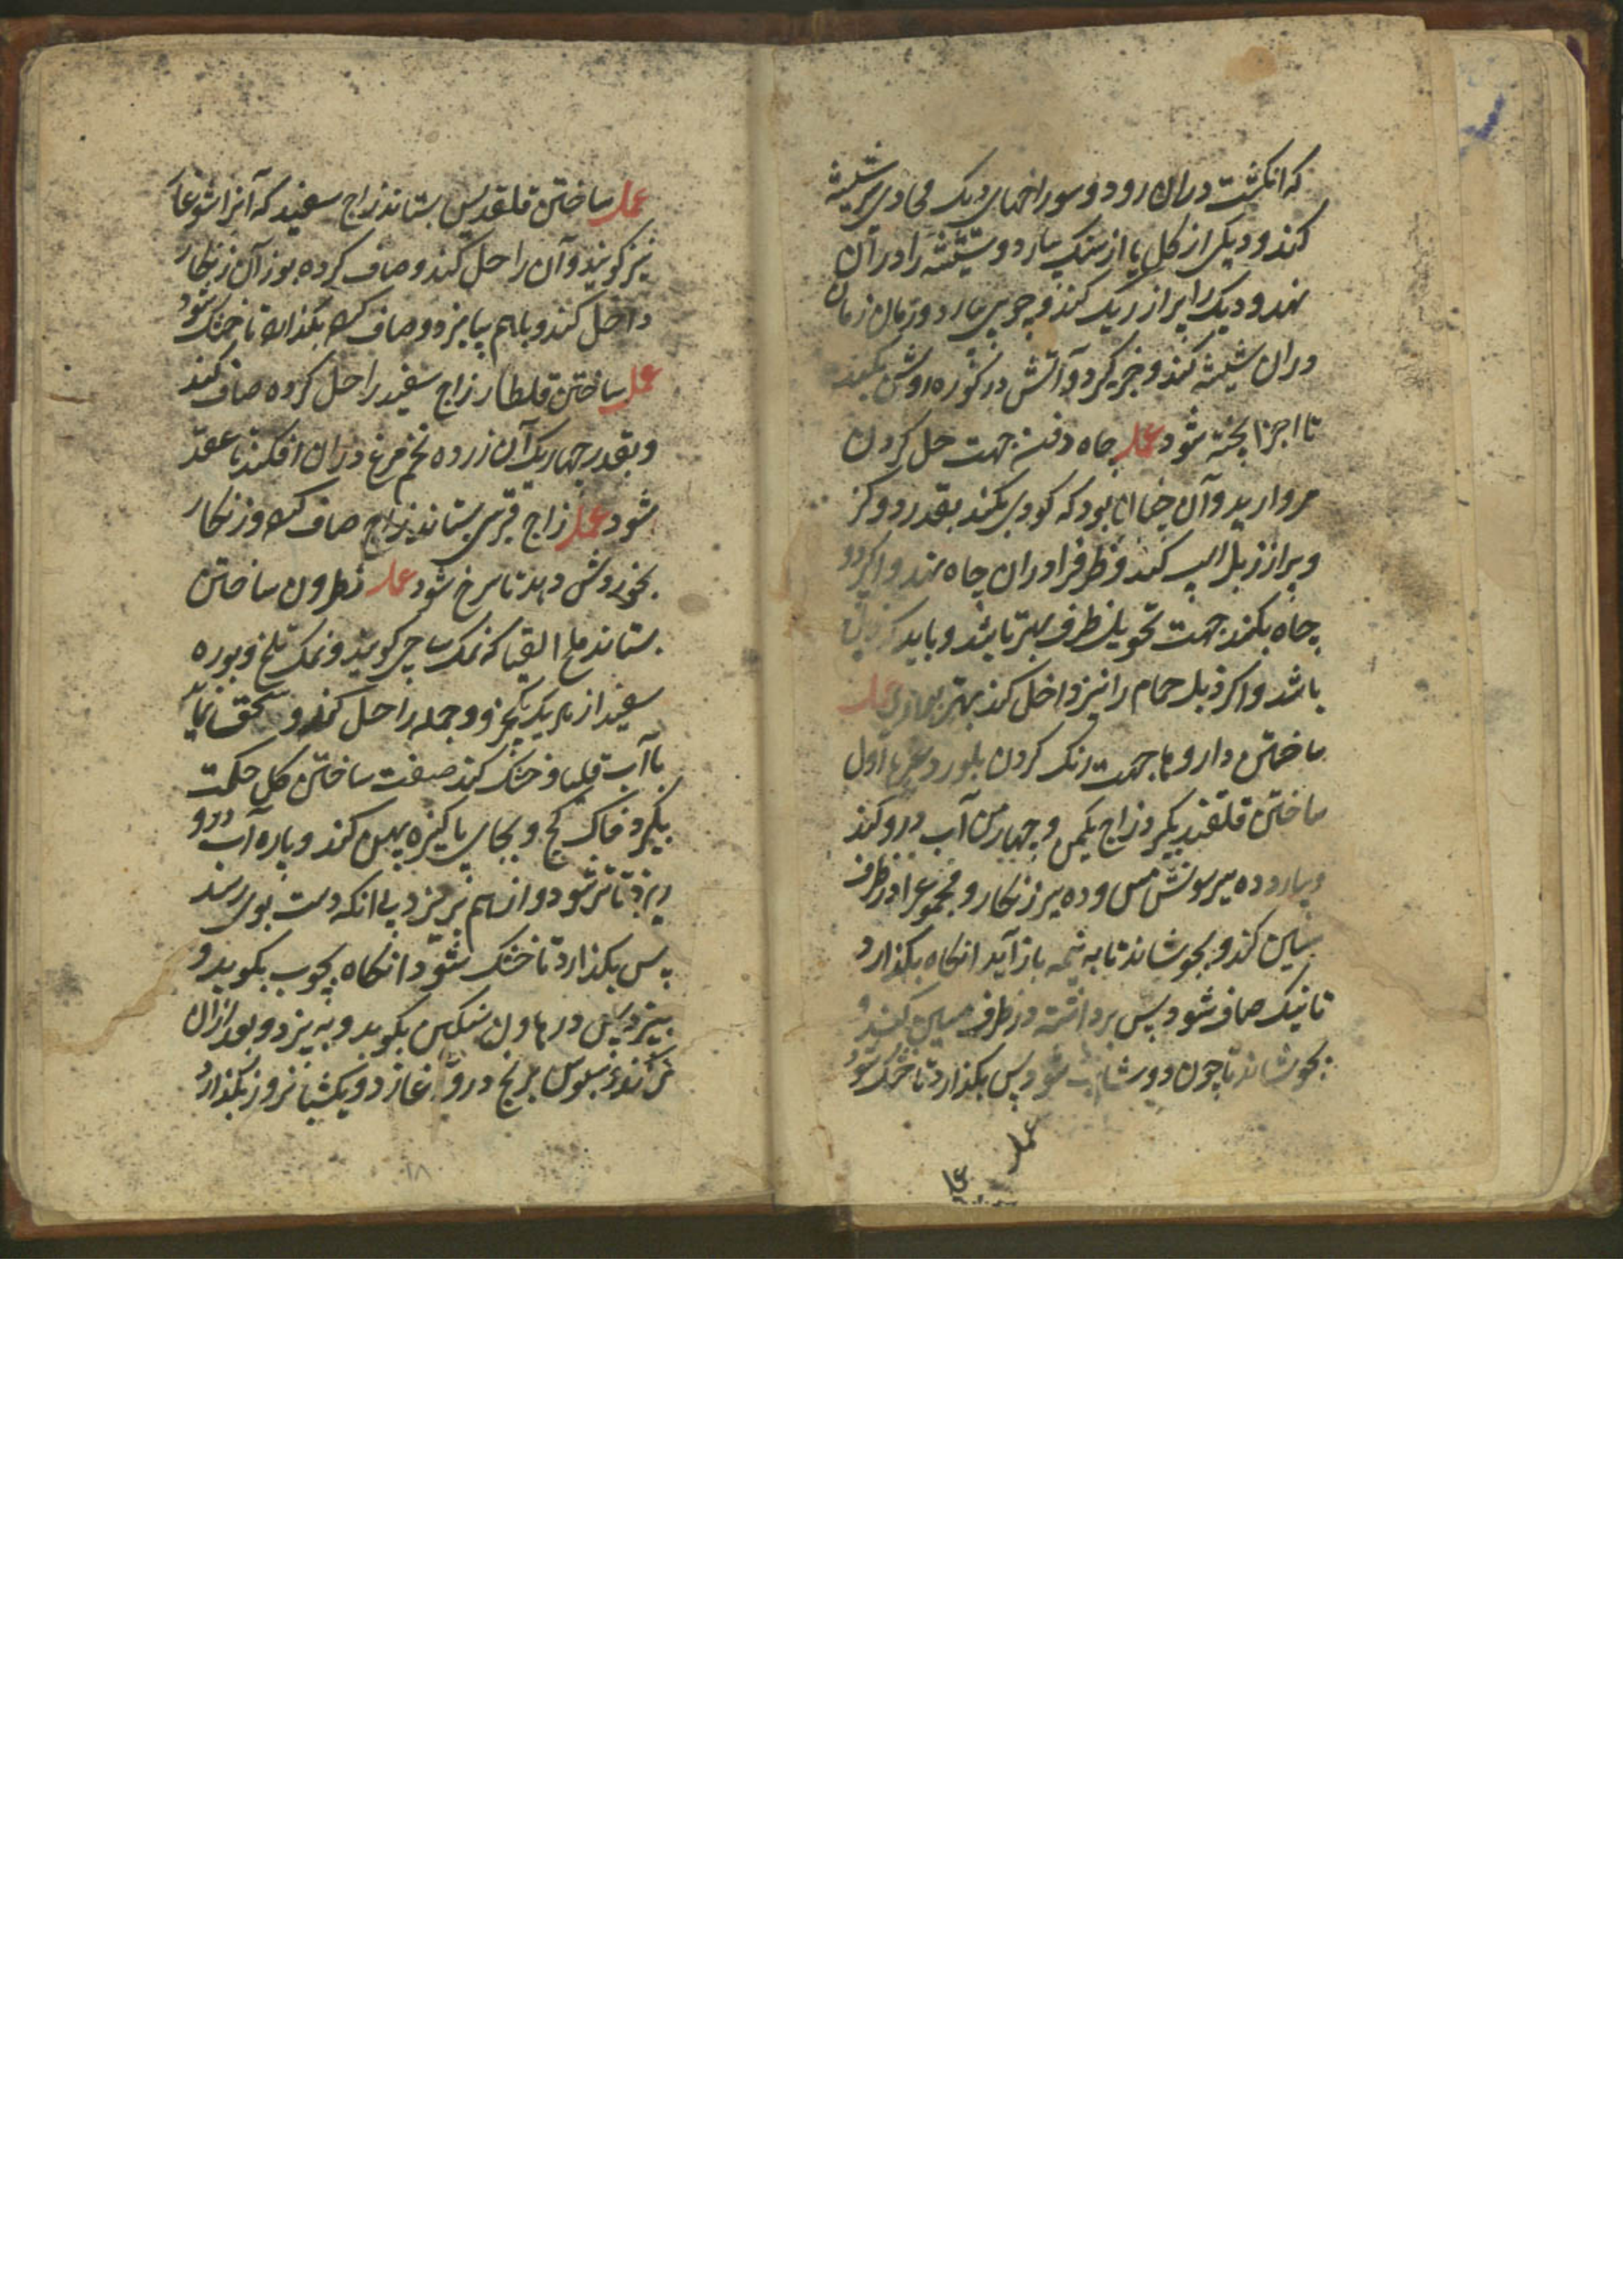 که انکشت دران رود و سوراخهای دیک محاذی سر شیشه
کنند و دیکی از کل یا از سنک بیارد و شیشه را در آن
نهد و دیک را پر از ریک کند و چوبی بیارد و زمان زمان
دران شیشه کند و خبر کیرد و آتش در کوره روشن بکند
تا اجزا پخته شود عمل چاه دفن جهت حل کردن
مروارید و آن چنان بود که کودی بکند بقدر دو کز
و پر از زبل اسپ کند و ظرف را دران چاه نهد و اکر دو
چاه بکند جهت تحویل ظرف بهتر باشد و باید که
باشد و اکر زبل حمام را نیز داخل کند بهتر بود عمل
ساختن داروها جهت رنک کردن بلور و اول
ساختن قلقند بکیرد زاج یکمن و چهار من آب درو کند
و بیارد ده سیر سونش مس و ده سیر زنکار و مجموع را در ظرف
مسین کند و بجوشاند تا به نیمه باز آید انکاه بکذارد
تا نیک صاف شود پس برداشته در ظرف مسین کند و
بجوشاند تا چون دوشاب شود پس بکذارد تا خشک شود
عمل
عمل ساختن قلقدیس بستاند زاج سفید که آنرا شوغار
نیز کویند و آن را حل کند و صاف کرده بوزن آن زنکار
داخل کند و باهم بیامیزد و صاف کند بکذارد تا خشک شود
عمل ساختن قلطار زاج سفید را حل کرده صاف کند
و بقدر چهاریک آن زرده تخم مرغ دران افکند تا عقد
شود عمل زاج قبرسی بستاند زاج صاف کند و زنکار
بخوردش دهد تا سرخ شود عمل نطرون ساختن
بستاند ملح القلیا که نمک ساجی کویند و نمک تلخ و بوره
سفید از هر یک یکجزو و جمله را حل کند و سحق نماید
با آب قلیا و خشک کند صفت ساختن کل حکمت
بکیرد خاک کچ و بجای پاکیزه پهن کند و پاره آب درو
ریزد تا تر شود و از هم نریزد بی انکه دست بوی رسد
پس بکذارد تا خشک شود انکاه بچوب بکوبد و
بیزد پس در هاون سنکین بکوبد و به بیزد و بعد ازان
تر کند و سبوس برنج درو آغازد و یکشبانروز بکذارد
۱۸